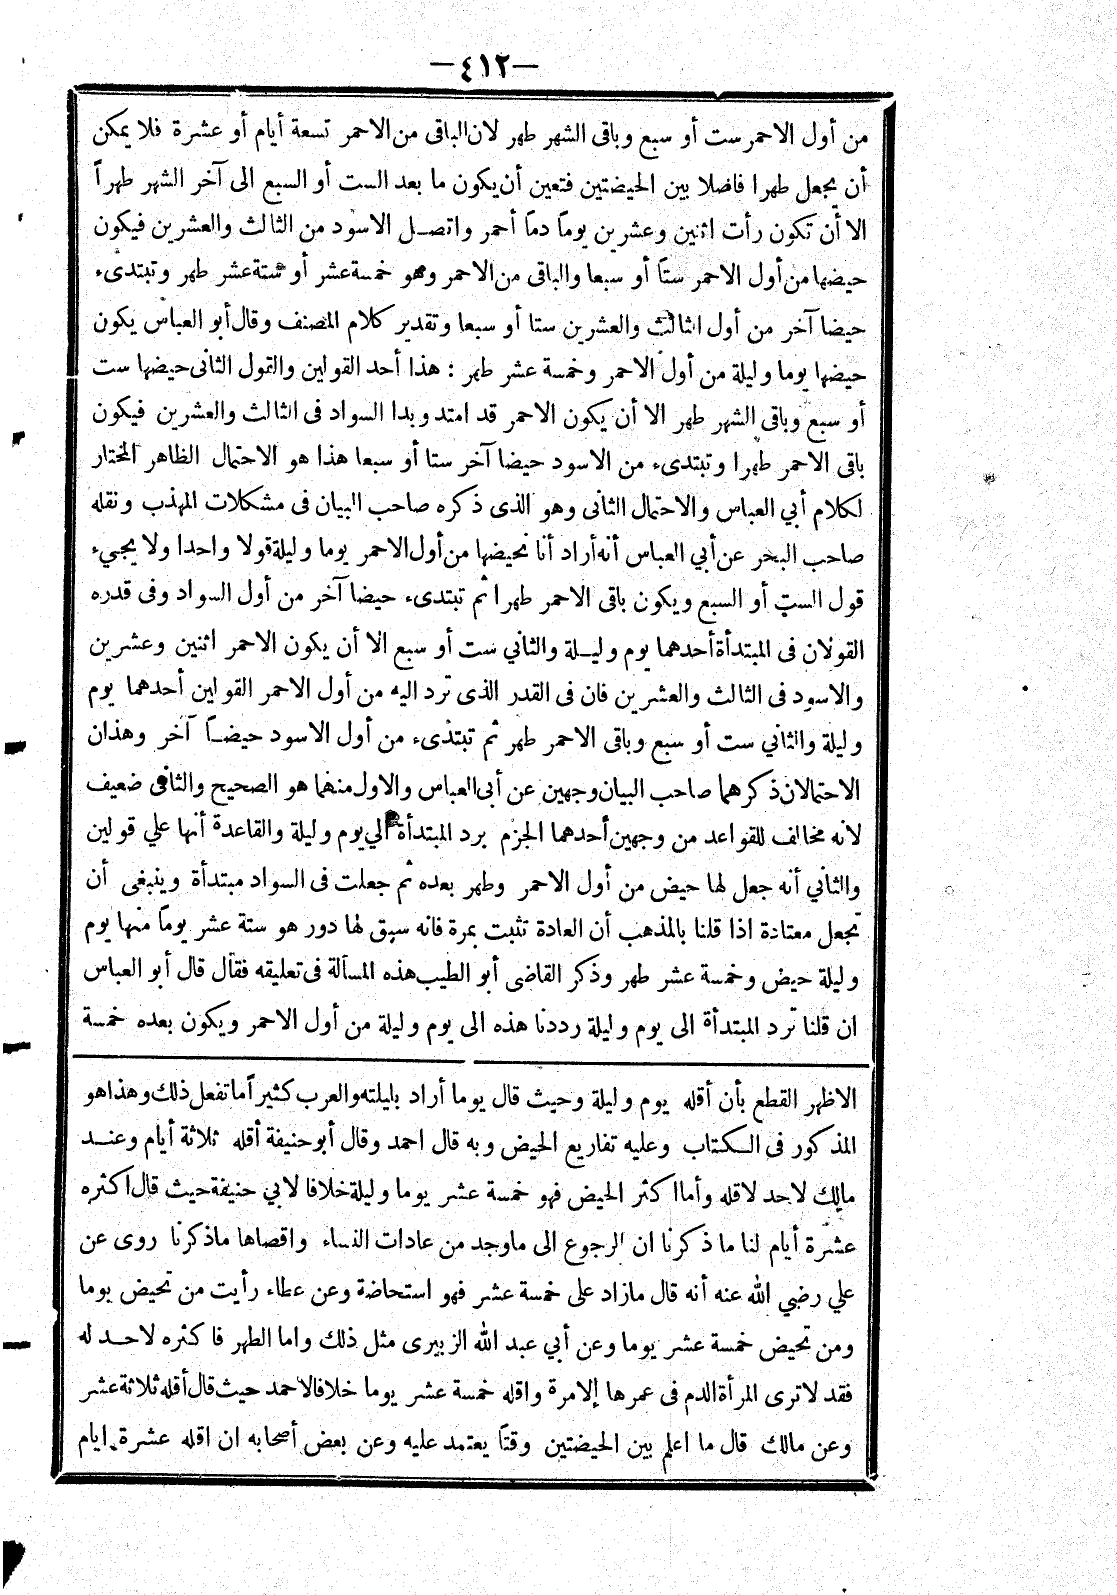 —٤١٢—
من أول الاحمر ست أو سبع وباقى الشهر طهر لان الباقى من الاحمر تسعة أيام أو عشرة فلا يمكن
أن يجعل طهرا فاضلا بين الحيضتين فتعين أن يكون ما بعد الست أو السبع الى آخر الشهر طهراً
الا أن تكون رأت اثنين وعشرين يوماً دماً أحمر واتصل الاسود من الثالث والعشرين فيكون
حيضها من أول الاحمر ستاً أو سبعا والباقى من الاحمر وهو خمسة عشر أو ستة عشر طهر وتبتدىء
حيضا آخر من أول الثالث والعشرين ستا أو سبعا وتقدير كلام المصنف وقال أبو العباس يكون
حيضها يوما وليلة من أول الاحمر وخمسة عشر طهر : هذا أحد القولين والقول الثانى حيضها ست
أو سبع وباقى الشهر طهر الا أن يكون الاحمر قد امتد وبدا السواد فى الثالث والعشرين فيكون
باقى الاحمر طهرا وتبتدىء من الاسود حيضا آخر ستا أو سبعا هذا هو الاحتمال الظاهر المختار
لكلام أبي العباس والاحتمال الثانى وهو الذى ذكره صاحب البيان فى مشكلات المهذب ونقله
صاحب البحر عن أبي العباس أنه أراد أنا نحيضها من أول الاحمر يوما وليلة قولا واحدا ولا يجيء
قول الست أو السبع ويكون باقى الاحمر طهرا ثم تبتدىء حيضا آخر من أول السواد وفى قدره
القولان فى المبتدأة أحدهما يوم وليلة والثاني ست أو سبع الا أن يكون الاحمر اثنين وعشرين
والاسود فى الثالث والعشرين فان فى القدر الذى ترد اليه من أول الاحمر القولين أحدهما يوم
وليلة والثاني ست أو سبع وباقى الاحمر طهر ثم تبتدىء من أول الاسود حيضاً آخر وهذان
الاحتمالان ذكرهما صاحب البيان وجهين عن أبى العباس والاول منهما هو الصحيح والثانى ضعيف
لانه مخالف للقواعد من وجهين أحدهما الجزم برد المبتدأة الي يوم وليلة والقاعدة أنها علي قولين
والثاني أنه جعل لها حيض من أول الاحمر وطهر بعده ثم جعلت فى السواد مبتدأة وينبغى أن
تجعل معتادة اذا قلنا بالمذهب أن العادة تثبت بمرة فانه سبق لها دور هو ستة عشر يوماً منها يوم
وليلة حيض وخمسة عشر طهر وذكر القاضى أبو الطيب هذه المسألة فى تعليقه فقال قال أبو العباس
ان قلنا ترد المبتدأة الى يوم وليلة رددنا هذه الى يوم وليلة من أول الاحمر ويكون بعده خمسة
الاظهر القطع بأن أقله يوم وليلة وحيث قال يوما أراد بليلته والعرب كثيراً ما تفعل ذلك وهذا هو
المذكور فى الكتاب وعليه تفاريع الحيض وبه قال احمد وقال أبو حنيفة أقله ثلاثة أيام وعند
مالك لاحد لاقله وأما اكثر الحيض فهو خمسة عشر يوما وليلة خلافا لابي حنيفة حيث قال اكثره
عشرة أيام لنا ما ذكرنا ان الرجوع الى ما وجد من عادات النساء واقصاها ما ذكرنا روى عن
علي رضي الله عنه أنه قال مازاد على خمسة عشر فهو استحاضة وعن عطاء رأيت من تحيض يوما
ومن تحيض خمسة عشر يوما وعن أبي عبد الله الزبيرى مثل ذلك واما الطهر فاكثره لاحد له
فقد لا ترى المرأة الدم فى عمرها إلامرة واقله خمسة عشر يوما خلافا لاحمد حيث قال أقله ثلاثة عشر
وعن مالك قال ما اعلم بين الحيضتين وقتاً يعتمد عليه وعن بعض أصحابه ان اقله عشرة ايام